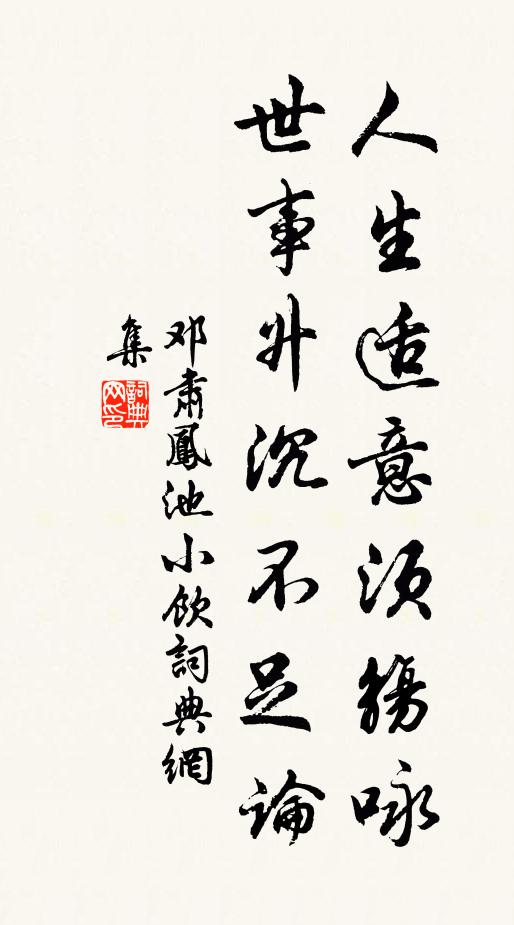 人生适意須觴咏
世事升沉不足論
邓肅鳳池小飲詞典網
集
詞典
网印